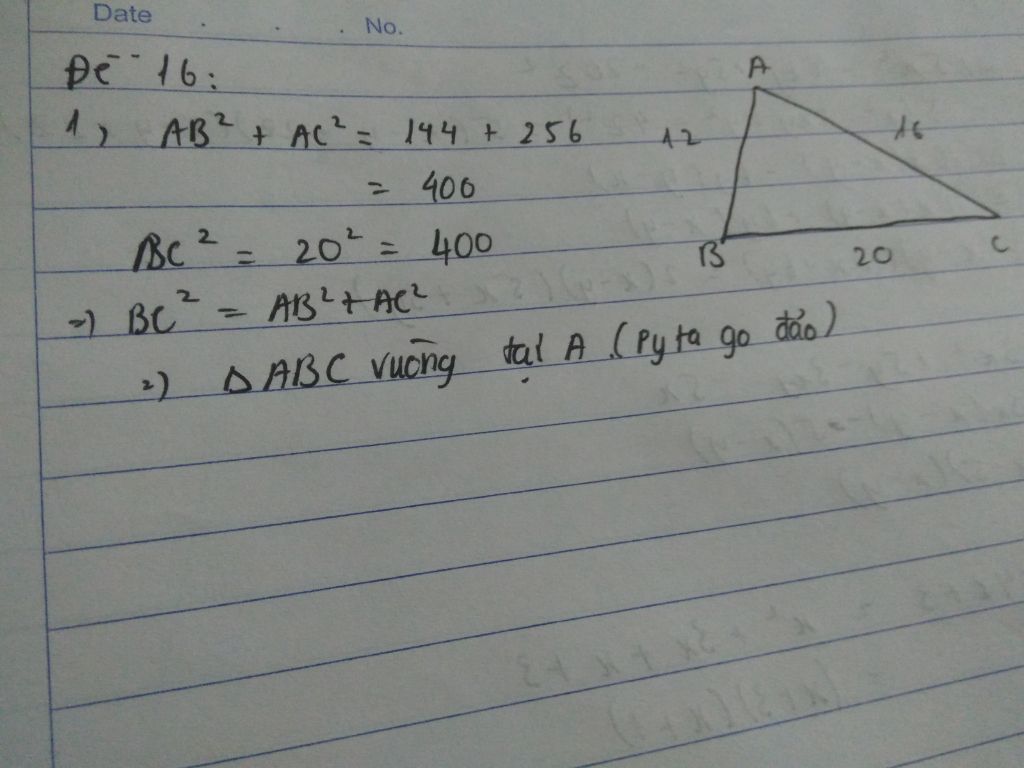 Date . . . No.
Đề 16:
1, AB² + AC² = 144 + 256
= 400
BC² = 20² = 400
=) BC² = AB² + AC²
=) Δ ABC vuông tại A (Pytago đảo)
A
12
16
B
20
C